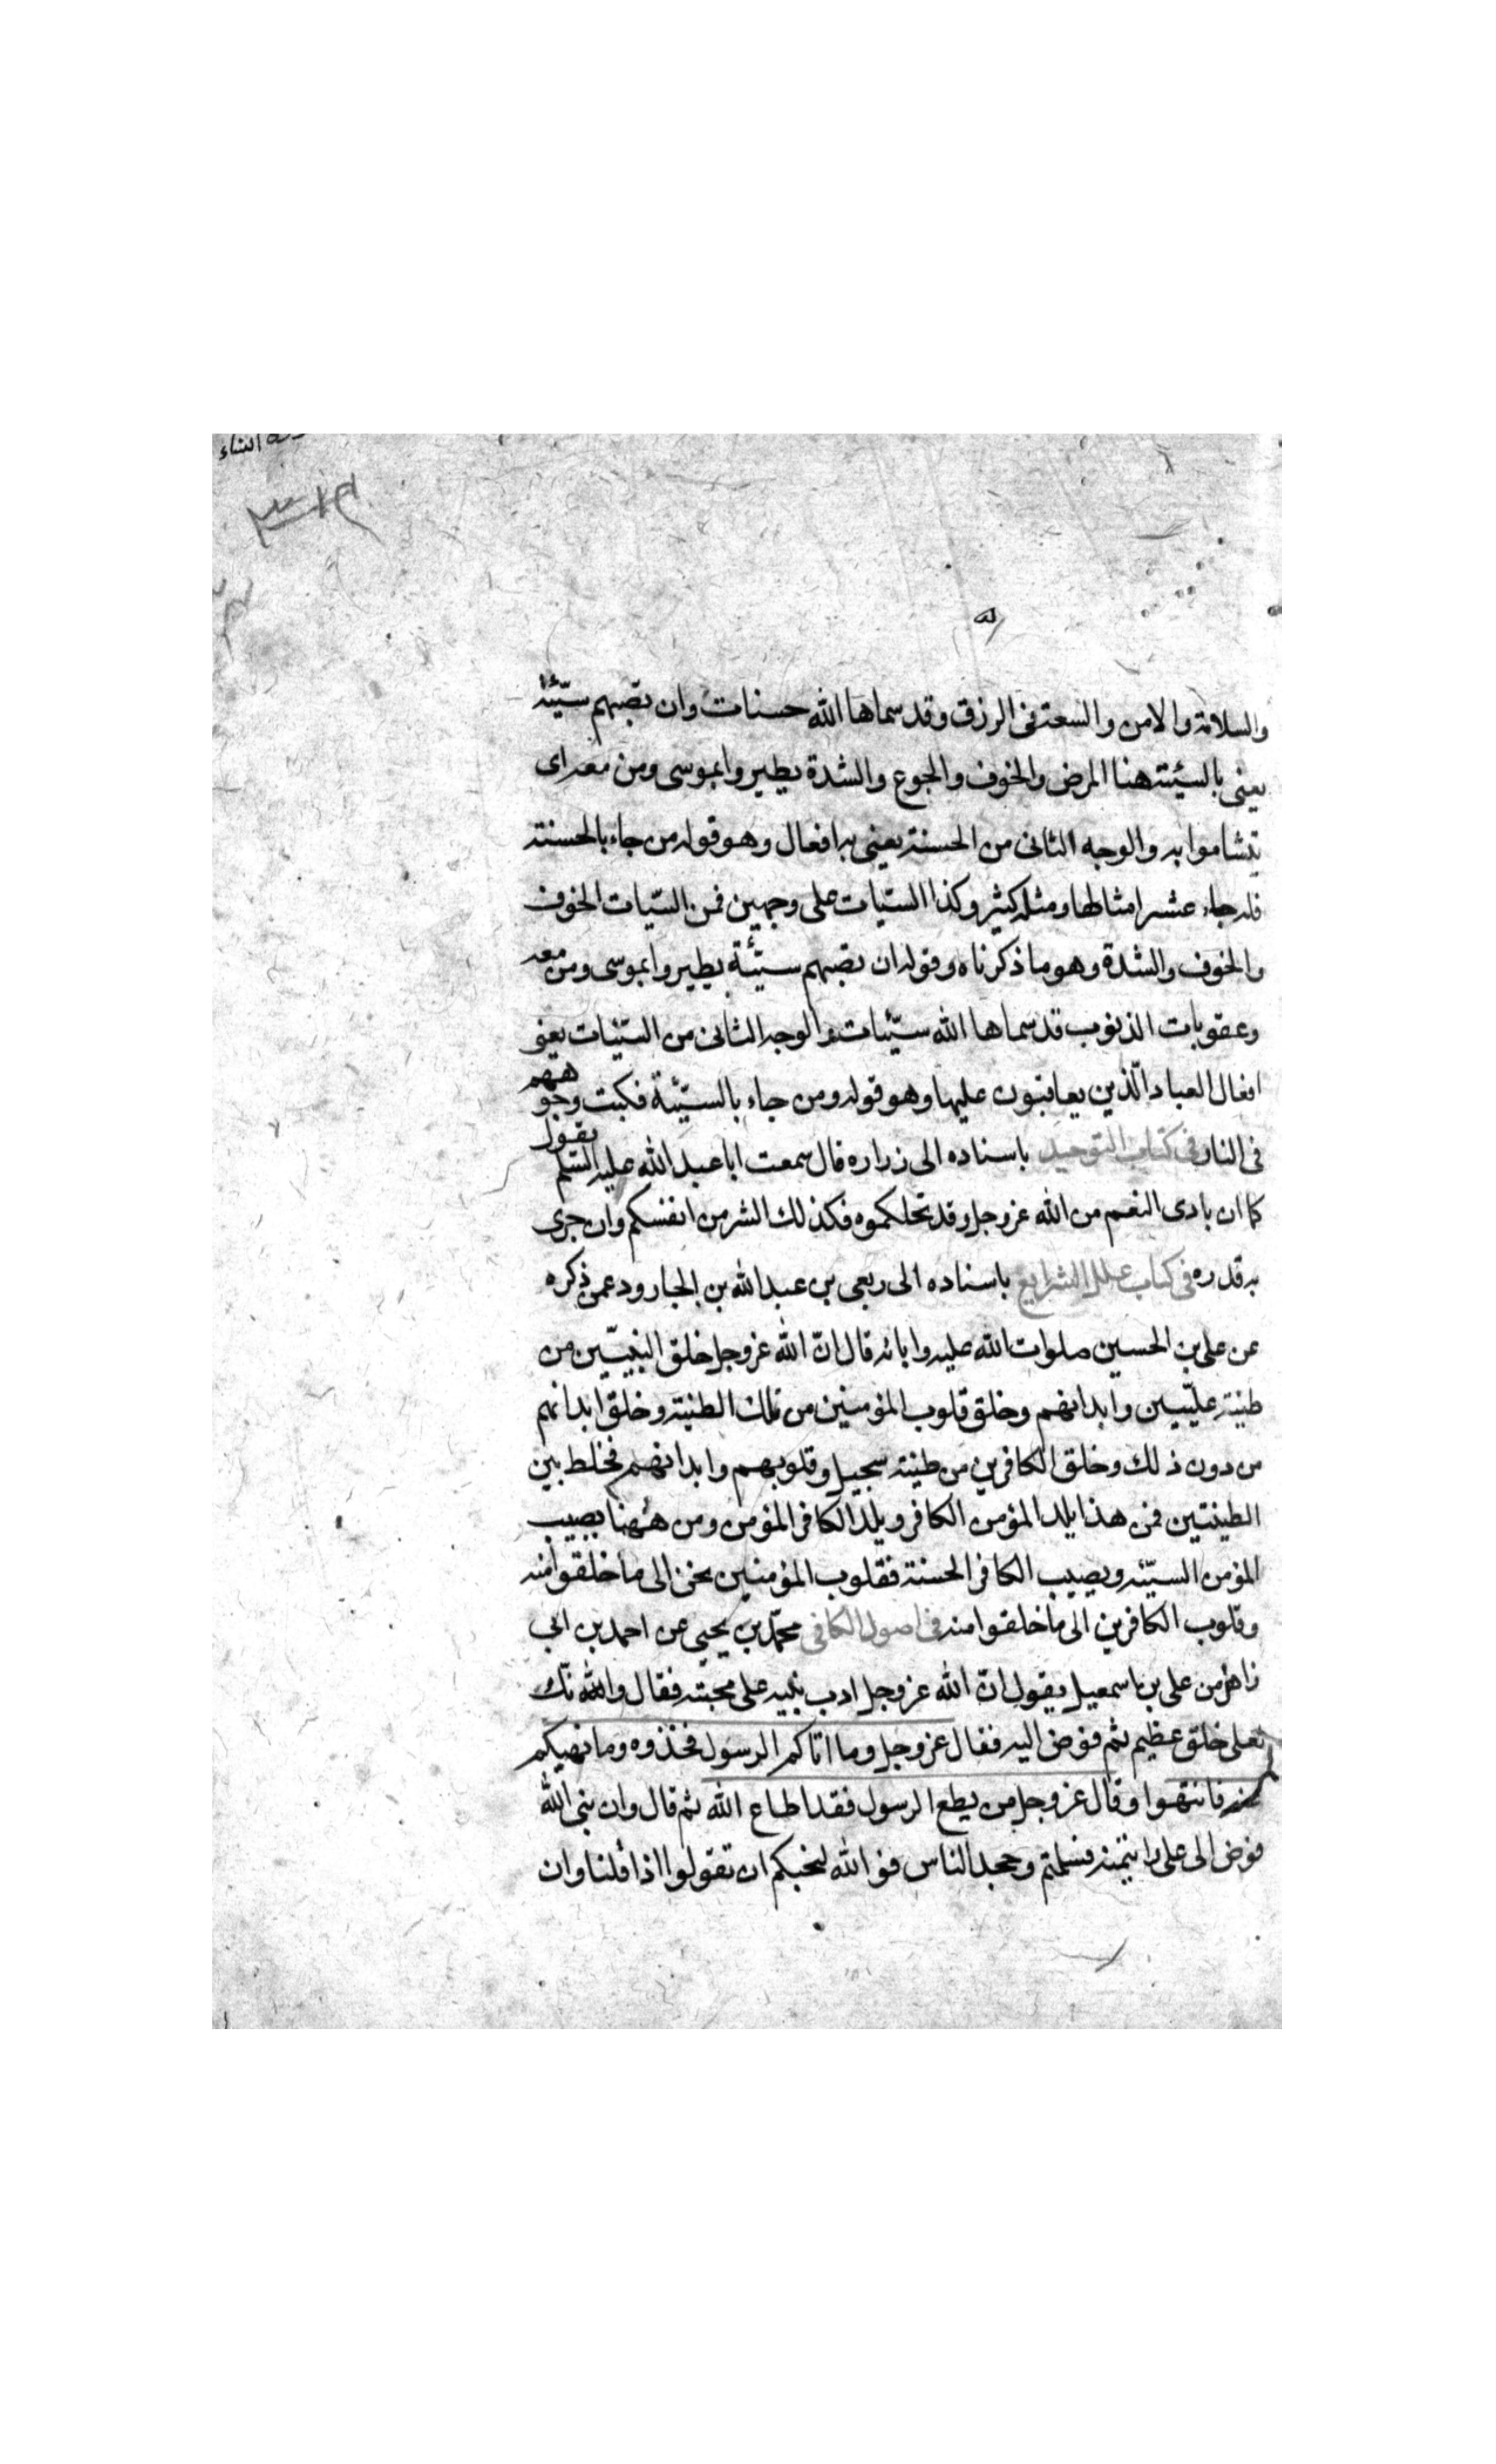 والسلامة والامن والسعة فى الرزق وقد سماها الله حسنات وان تصبهم سيّئة
يعنى بالسيئة هنا المرض والخوف والجوع والشدة يطيروا بموسى ومن معه اى
يتشاموا به والوجه الثانى من الحسنة يعنى به افعال وهو قوله من جاء بالحسنة
فله جاء عشر امثالها ومثله كثير وكذا السيّات على وجهين فمن السيّات الخوف
والخوف والشدة وهو ما ذكرناه وقوله ان تصبهم سيّئة يطيروا بموسى ومن معه
وعقوبات الذنوب قد سماها الله سيّئات والوجه الثانى من السيّئات يعنى
افعال العباد الّذين يعاقبون عليها وهو قوله ومن جاء بالسيّئة فكبت وجوههم
فى النار فى كتاب التوحيد باسناده الى زراره قال سمعت ابا عبد الله عليه السّلم يقول
كما ان بادى النعم من الله عز وجل وقد نحلكموه فكذلك الشر من انفسكم وان جرى
به قدره فى كتاب علل الشرايع باسناده الى ربعى بن عبد الله بن الجارود عمن ذكره
عن على بن الحسين صلوات الله عليه وابائه قال انّ الله عز وجل خلق النبيّين من
طينة عليّيين وابدانهم وخلق قلوب المؤمنين من تلك الطينة وخلق ابدانهم
من دون ذلك وخلق الكافرين من طينة سجيل وقلوبهم وابدانهم فخلط بين
الطينتين فمن هذا يلد المؤمن الكافر ويلد الكافر المؤمن ومن ههنا يصيب
المؤمن السيّئة ويصيب الكافر الحسنة فقلوب المؤمنين تحن الى ما خلقوا منه
وقلوب الكافرين الى ما خلقوا منه فى اصول الكافى محمّد بن يحيى عن احمد بن ابى
زاهر من على بن اسمعيل يقول انّ الله عز وجل ادب نبيه على محبته فقال والله نّك
لعلى خلق عظيم ثم فوض اليه فقال عز وجل وما اتاكم الرسول فخذوه وما نهيكم
عنه فانتهوا وقال عز وجل من يطع الرسول فقد اطاع الله ثم قال وان نبى الله
فوض الى على وائتمنه فسلمتم وجحد الناس فو الله لنحبكم ان تقولوا اذا قلنا وان